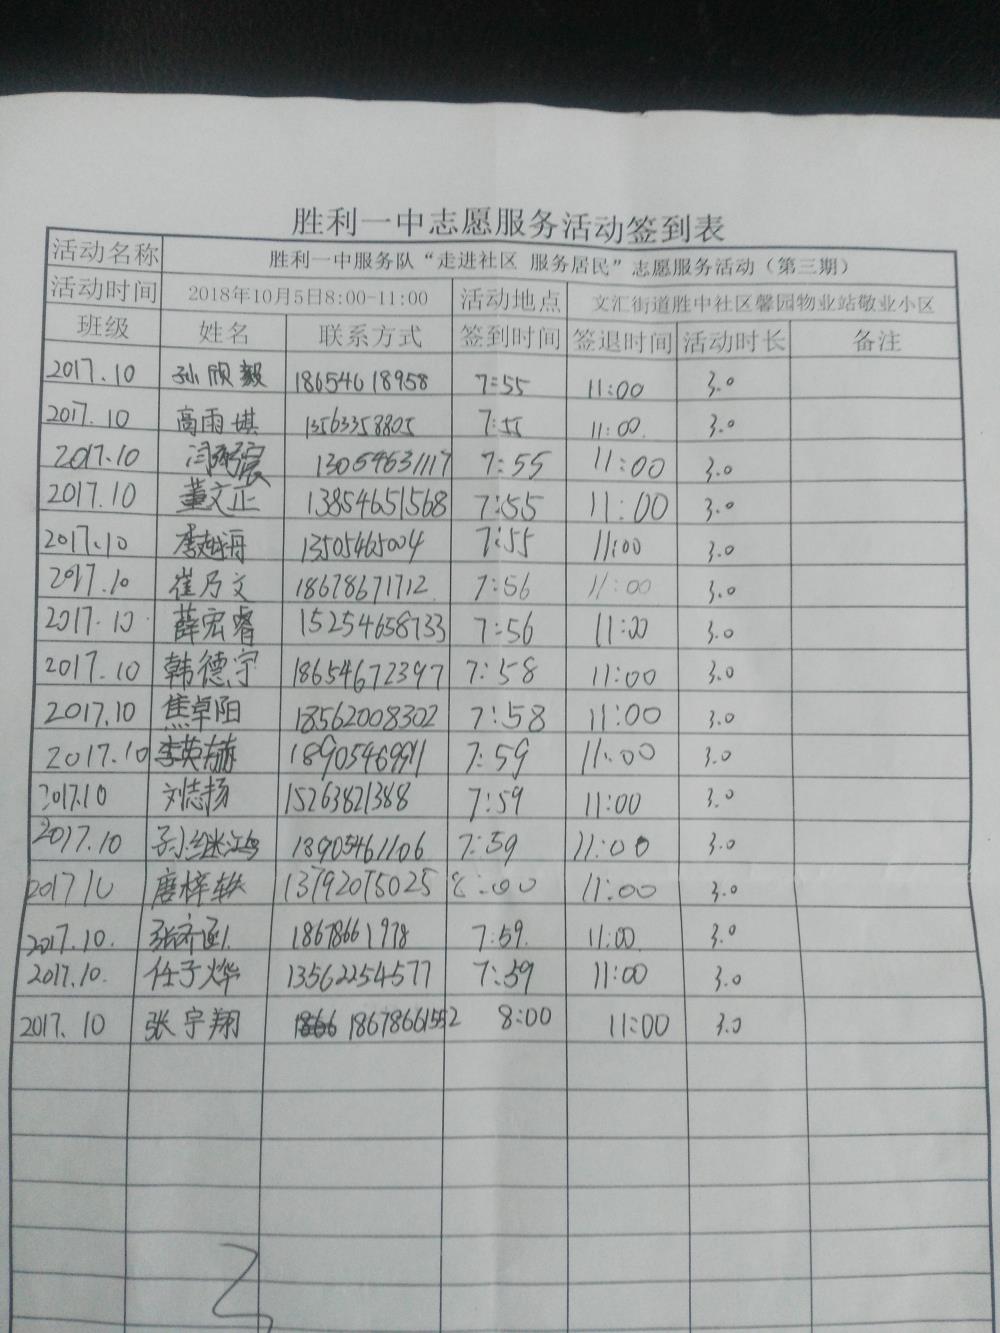 胜利一中志愿服务活动签到表
活动名称 胜利一中服务队“走进社区 服务居民”志愿服务活动（第三期）
活动时间 2018年10月5日8:00-11:00 活动地点 文汇街道胜中社区馨园物业站敬业小区
班级 姓名 联系方式 签到时间 签退时间 活动时长 备注
2017.10 孙欣毅 18654618958 7:55 11:00 3.0
2017.10 高雨琪 13563358805 7:55 11:00. 3.0
2017.10 13054631117 7:55 11:00 3.0
2017.10 董文正 13854651568 7:55 11:00 3.0
2017.10 李越冉 13505465004 7:55 11:00 3.0
2017.10 崔乃文 18678671712 7:56 11:00 3.0
2017.10 薛宏睿 15254658733 7:56 11:00 3.0
2017.10 韩德宇 18654672397 7:58 11:00 3.0
2017.10 焦卓阳 18562008302 7:58 11:00 3.0
2017.10 李英赫 7:59 11:00 3.0
2017.10 刘志扬 15263821388 7:59 11:00 3.0
2017.10 孙继鸿 18905461106 7:59 11:00 3.0
2017 10 唐梓轶 13792075025 8:00 11:00 3.0
2017.10. 18678661978 7:59. 11:00. 3.0
2017.10. 任子烨 13562254577 7:59 11:00 3.0
2017.10 张宇翔 18678661552 8:00 11:00 3.0